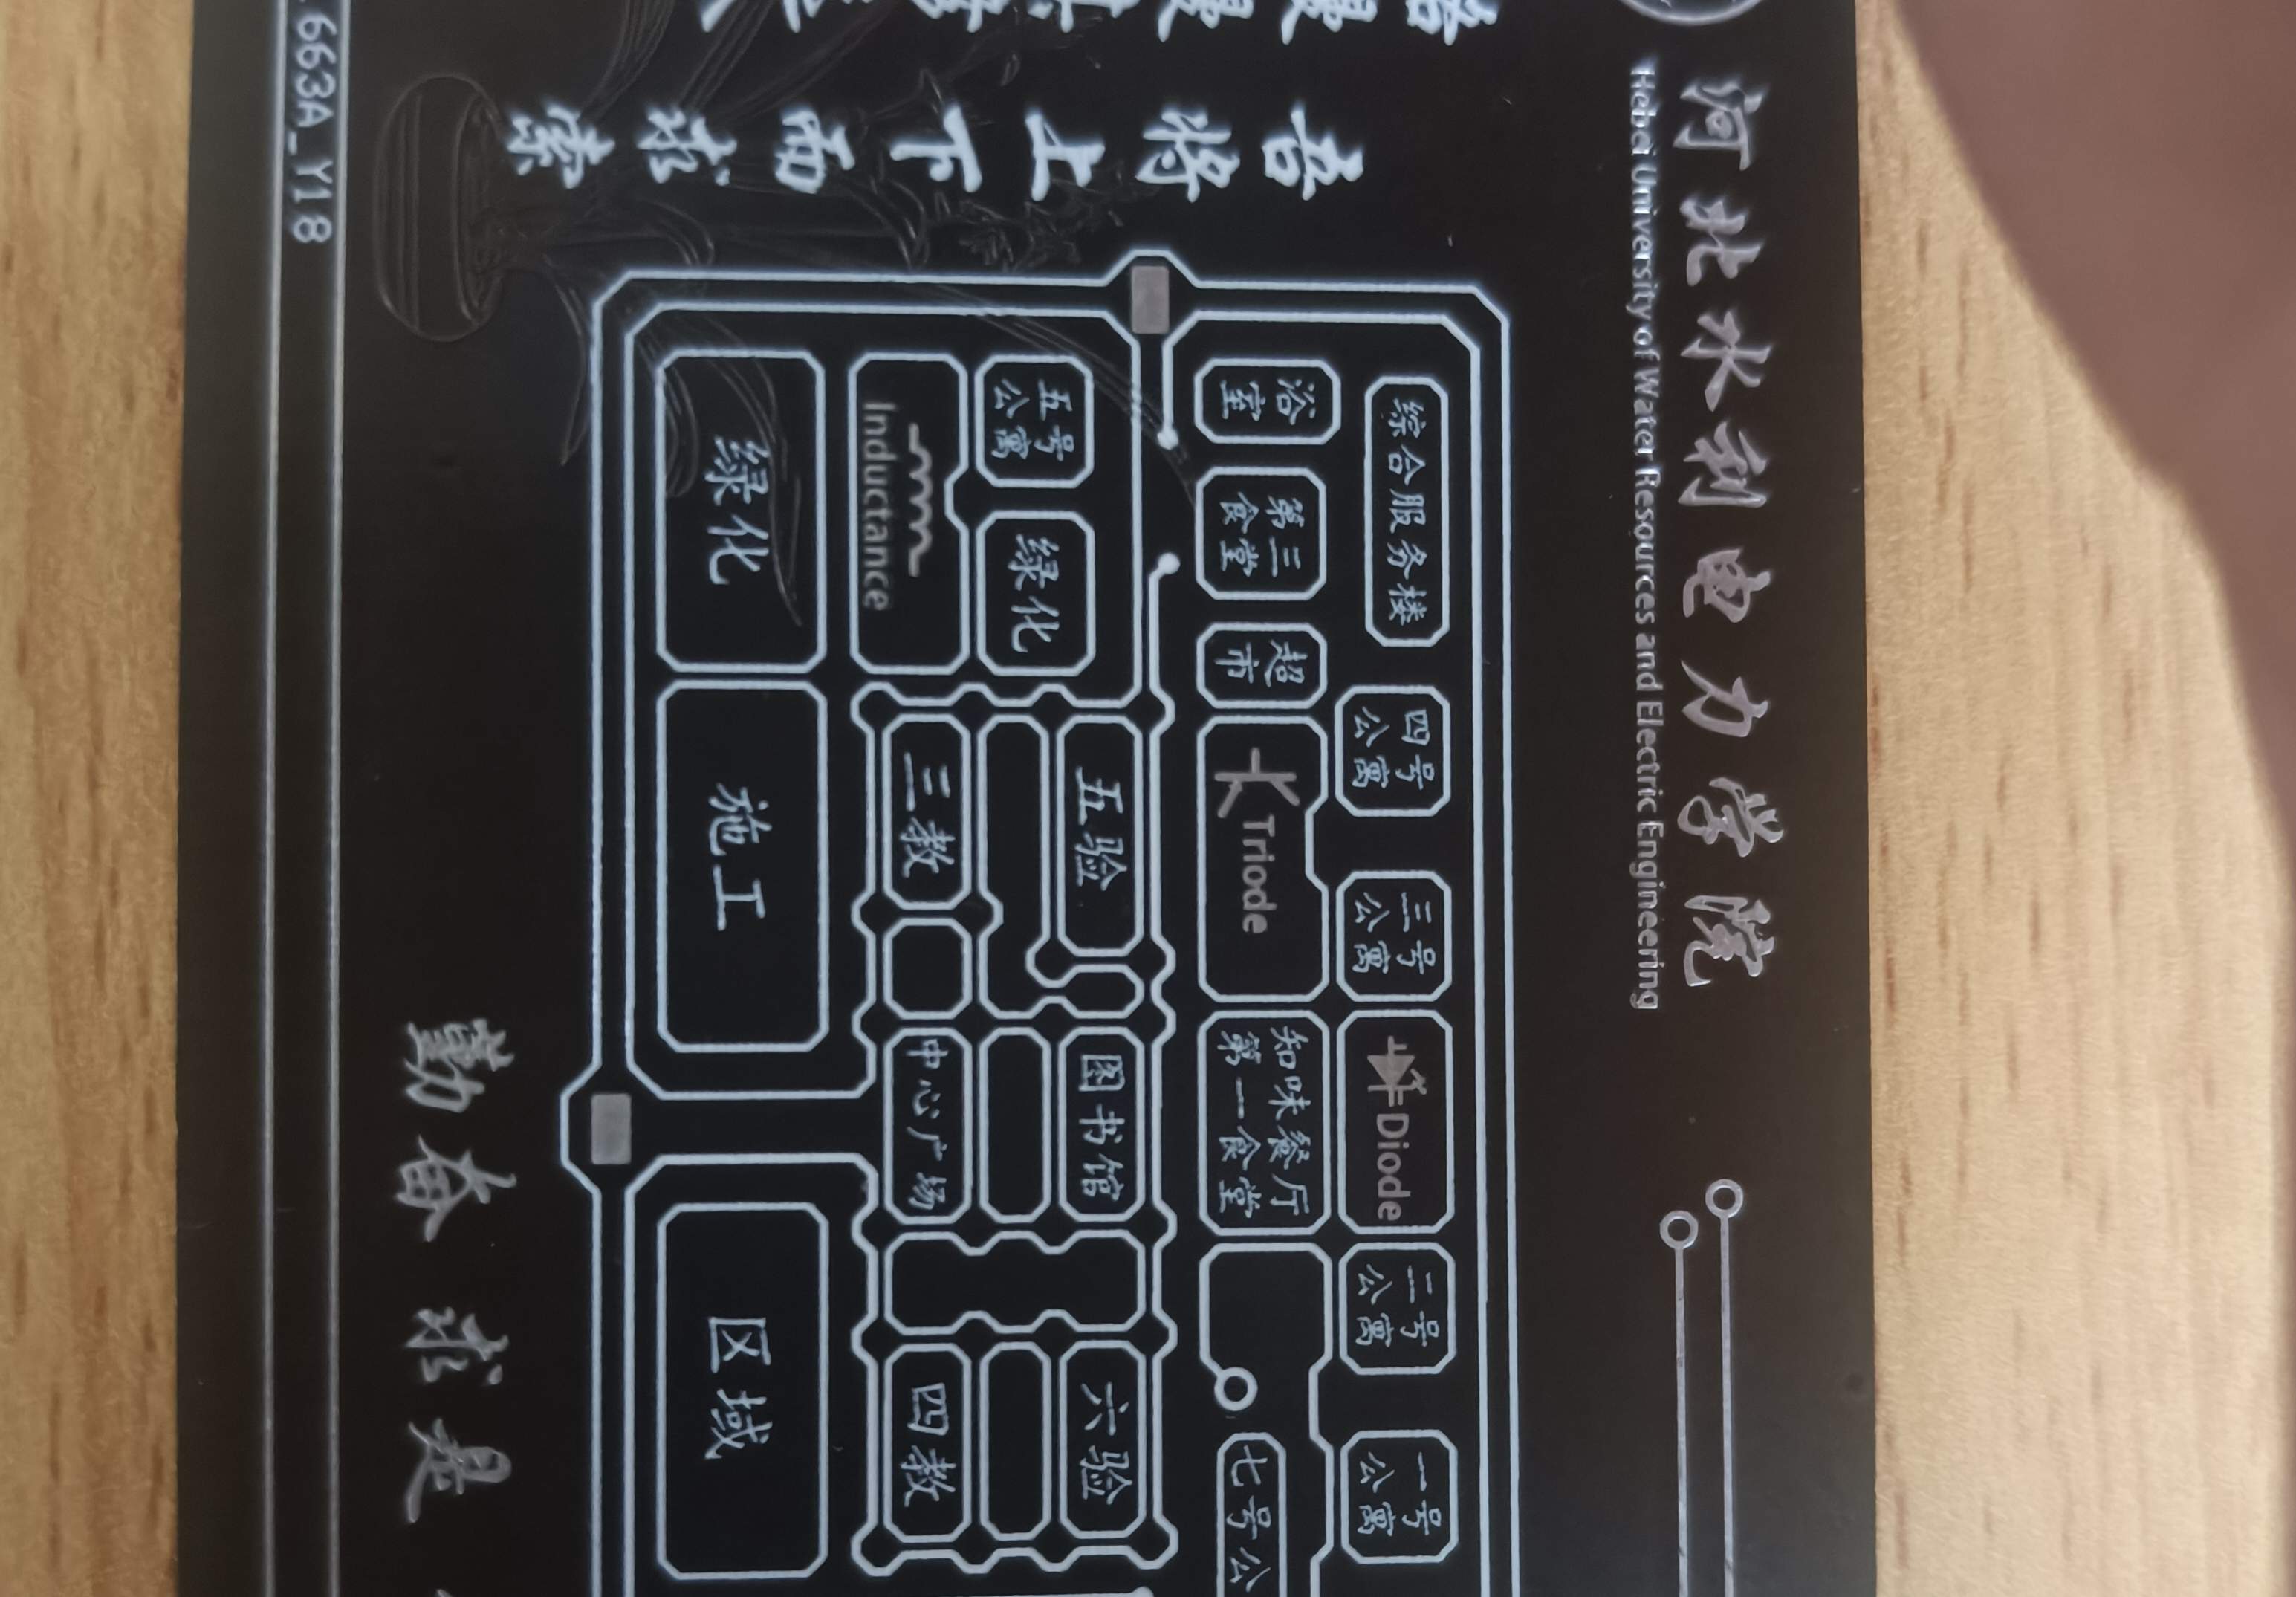 河北水利电力学院
Hebei University of Water Resources and Electric Engineering
吾将上下而求索
综合服务楼
四号
公寓
三号
公寓
Diode
二号
公寓
一号
公寓
浴
室
第三
食堂
超
市
Triode
知味餐厅
第一食堂
七号公
五号
公寓
绿化
五验
图书馆
六验
Inductance
三教
中心广场
四教
绿化
施工
区域
勤奋 求是
663A_Y18